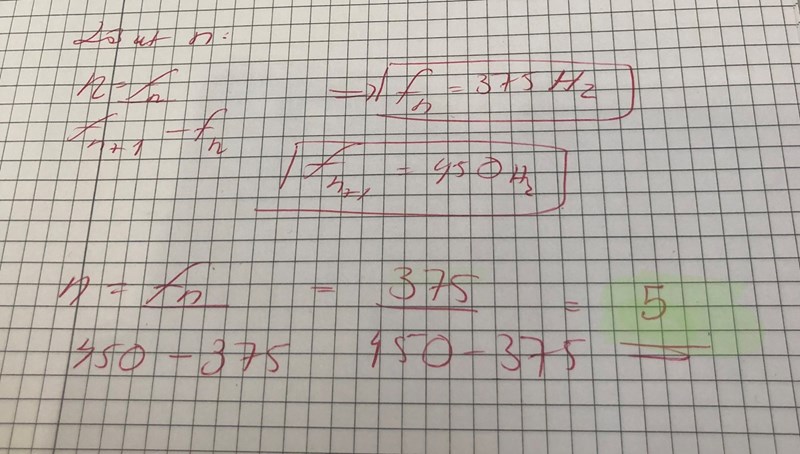 Lös ut n:
n = fn
fn+1 - fn
=> fn = 375 Hz
fn+1 = 450 Hz
n = fn = 375 = 5
450 - 375 450 - 375